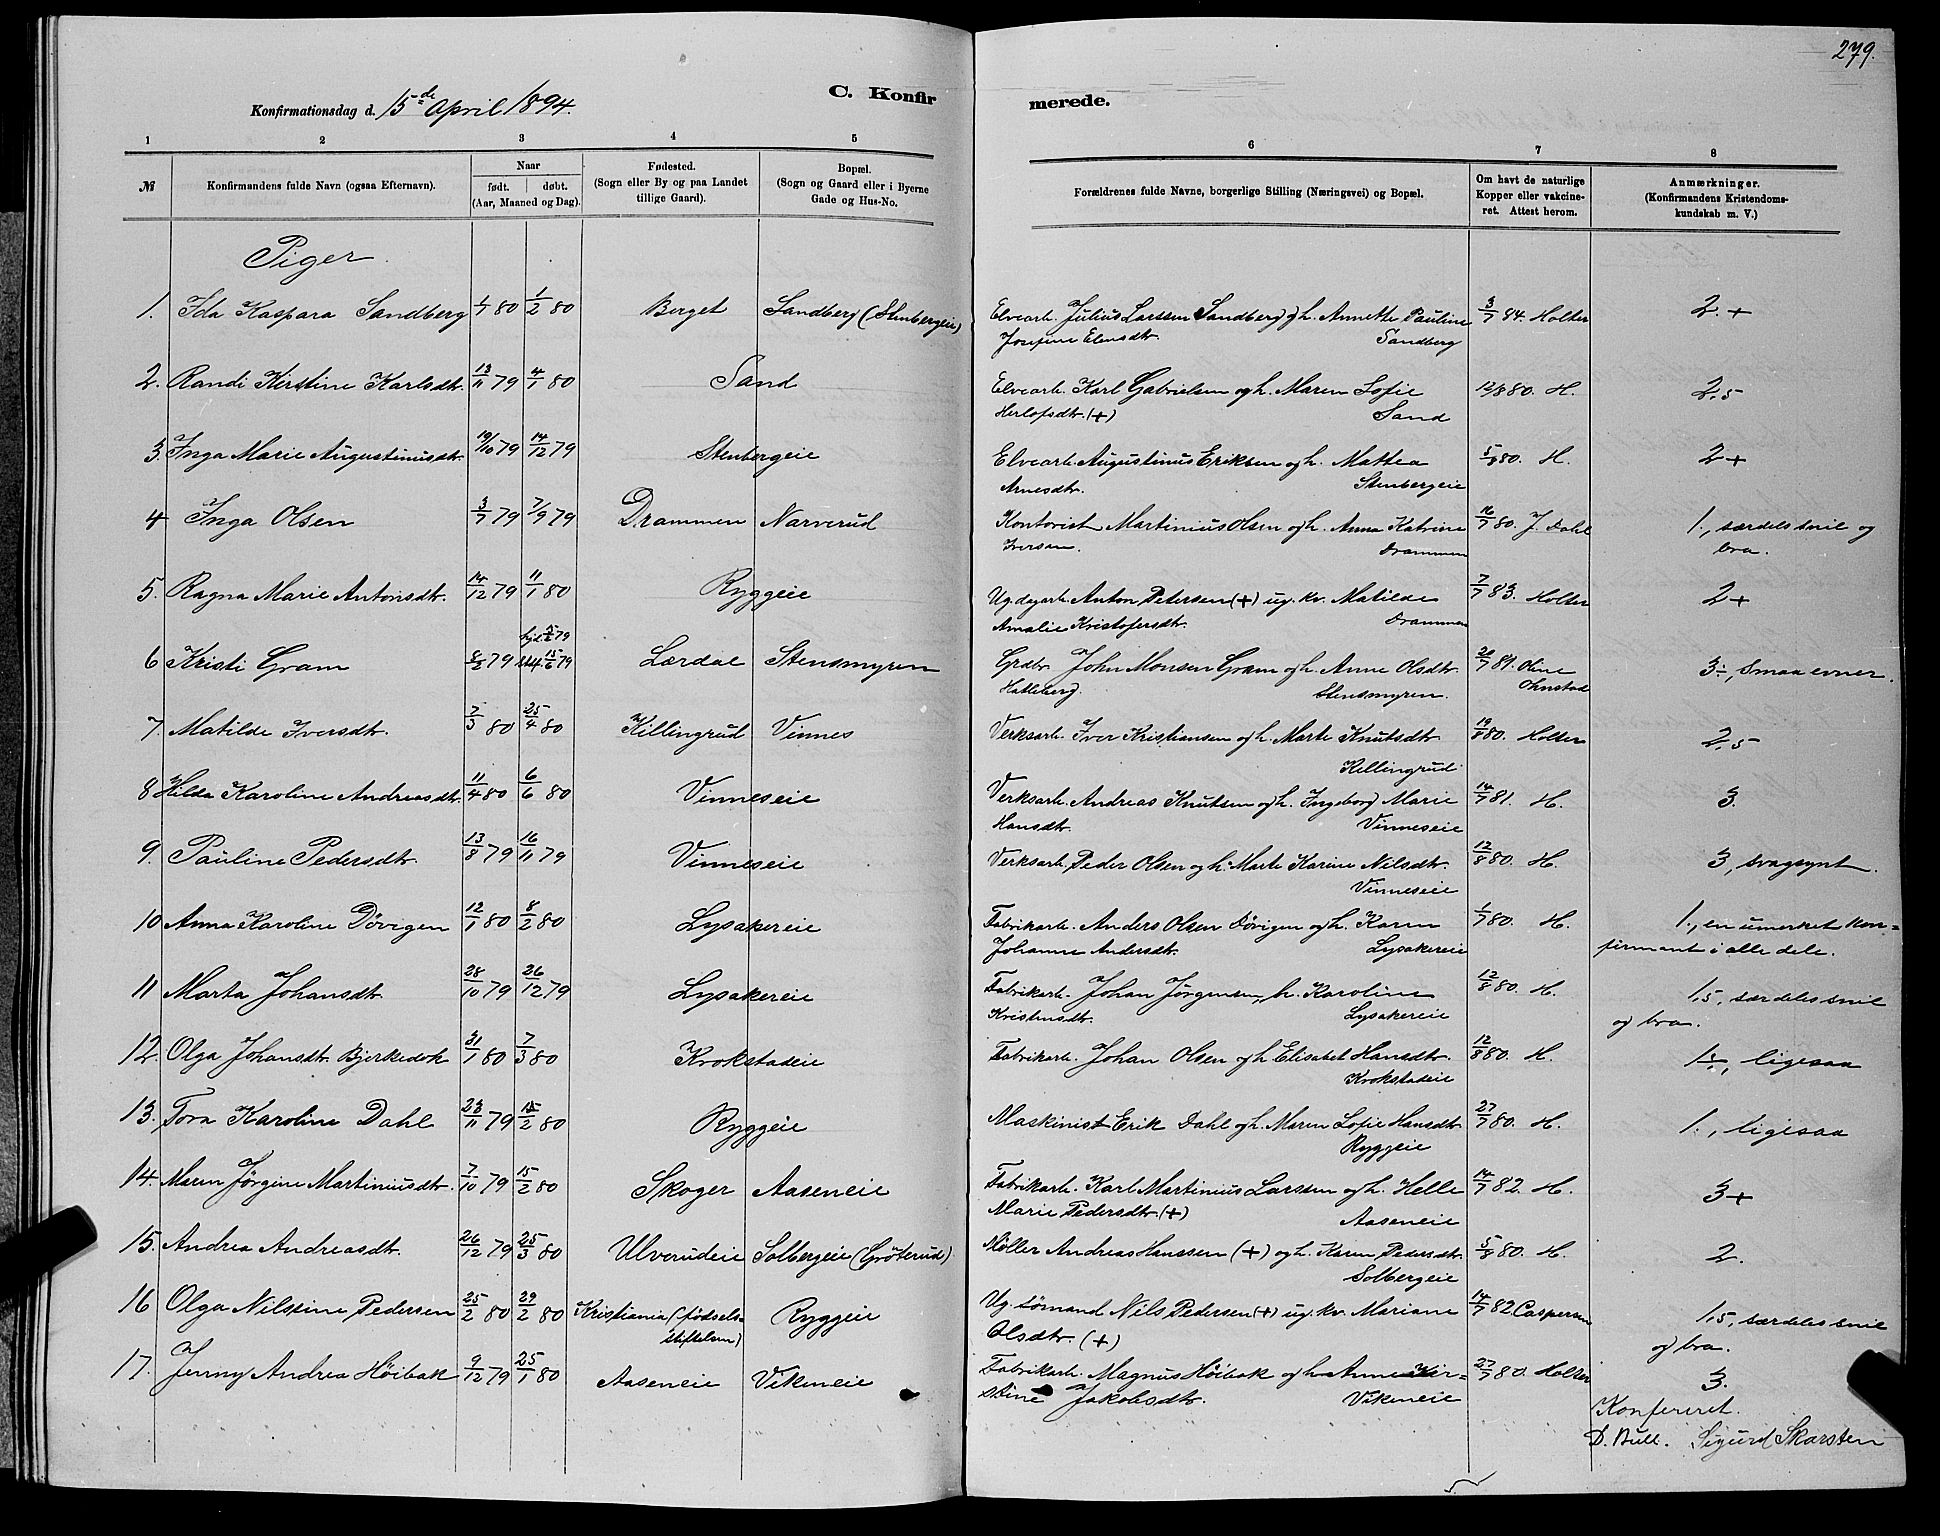 279.
Konfirmationsdag d. 15de April 1894.
C. Konfir
merede.
1 2 3 4 5 6 7 8
№ Konfirmandens fulde Navn (ogsaa Efternavn). Naar født. døbt. (Aar, Maaned og Dag). Fødested. (Sogn eller By og paa Landet tillige Gaard). Bopæl. (Sogn og Gaard eller i Byerne Gade og Hus-No. Forældrenes fulde Navne, borgerlige Stilling (Næringsvei) og Bopæl. Om havt de naturlige Kopper eller vakcineret. Attest herom. Anmærkninger. (Konfirmandens Kristendomskundskab m. V.)
Piger.
1. Ida Kaspara Sandberg 1/1 80 1/2 80 Berget Sandberg (Stenbergeie) Elvearb. Julius Larssen Sandberg og h. Annette Pauline 3/7 84. Holter 2.+
Josefine Elensdtr. Sandberg
2. Randi Kirstine Karlsdtr. 13/11 79 4/1 80 Sand Elvearb. Karl Gabrielsen og h. Maren Sofie 12/8 80. H. 2,5
Herlofsdtr. (+) Sand
3. Inga Marie Augustinusdtr. 19/10 79 14/12 79 Stenbergeie Elvearb. Augustinus Eriksen og h. Mattea 5/8 80. H. 2+
Arnesdtr. Stenbergeie
4 Inga Olsen 3/7 79 7/9 79 Drammen Narverud Kontorist Martinius Olsen og h. Anna Katrine 16/7 80. J. Dahl 1., særdeles snil og
Iversen. Drammen bra.
5. Ragna Marie Antonsdtr. 14/12 79 11/1 80 Ryggeie Ug. dgarb. Anton Petersen (+) ug. kv. Matilde 7/7 83. Holter 2+
Amalie Kristofersdtr. Drammen
6 Kristi Gram 8/2 79 15/6 79 Lærdal Stensmyren Grdbr. John Monsen Gram og h. Anne Olsdtr. 20/7 81. Oline 3÷, smaa evner.
Hatleberg. Stensmyren. Ohnstad
7. Matilde Iversdtr. 7/3 80 25/4 80 Killingrud Vinnes Verksarb. Iver Kristiansen og h. Marte Knutsdtr. 19/8 80. Holter 2,5
Kellingrud
8 Hilda Karoline Andreasdtr. 11/4 80 6/6 80 Vinneseie Verksarb. Andreas Knutsen og h. Ingeborg Marie 14/7 81. H. 3.
Hansdtr. Vinneseie
9. Pauline Pedersdtr. 13/8 79 16/11 79 Vinneseie Verksarb. Peder Olsen og h. Marte Karine Nilsdtr. 12/8 80. H. 3, svagsynt.
Vinneseie
10 Anna Karoline Døvigen 12/1 80 8/2 80 Lysakereie Fabrikarb. Anders Olsen Døvigen og h. Karen 1/7 80. H. 1., en umerket kon=
Johanne Andersdtr. Lysakereie firmant i alle dele.
11 Marta Johansdtr. 28/10 79 26/12 79 Lysakereie Fabrikarb. Johan Jørgensen, h. Karoline 12/8 80. H. 1,5, særdeles snil
Kristensdtr. Lysakereie og bra.
12. Olga Johansdtr. Bjerkedok 31/1 80 7/3 80 Krokstadeie Fabrikarb. Johan Olsen og h. Elisabet Hansdtr. 12/8 80. H. 1÷, ligesaa
Krokstadeie
13. Tora Karoline Dahl 23/11 79 15/2 80 Ryggeie Maskinist Erik Dahl og h. Maren Sofie Hansdtr. 27/7 80. H. 1., ligesaa
Ryggeie
14. Maren Jørgine Martiniusdtr. 7/10 79 15/2 80 Skoger Aaseneie Fabrikarb. Karl Martinius Larssen og h. Helle 14/7 82. H. 3+
Marie Pedersdtr. (+) Aaseneie
15. Andrea Andreasdtr. 26/12 79 25/3 80 Ulverudeie Solbergeie (Grøterud) Møller Andreas Hanssen (+) og h. Karen Pedersdtr. 5/8 80. H. 2.
Solbergeie
16 Olga Nilssine Pedersen 25/2 80 29/2 80 Kristiania (fødsels= Ryggeie Ug. sømand Nils Pedersen (+) ug. kv. Mariane 14/7 82 Caspersen 1,5, særdeles snil
stiftelsen) Olsdtr. (+) og bra.
17. Jenny Andrea Høibak 9/12 79 25/1 80 Aaseneie Vikeneie Fabrikarb. Magnus Høibak og h. Anne Kir= 27/7 80. Holter 3.
stine Jakobsdtr. Vikeneie
Konfereret.
D. Bull. Sigurd Skarsten